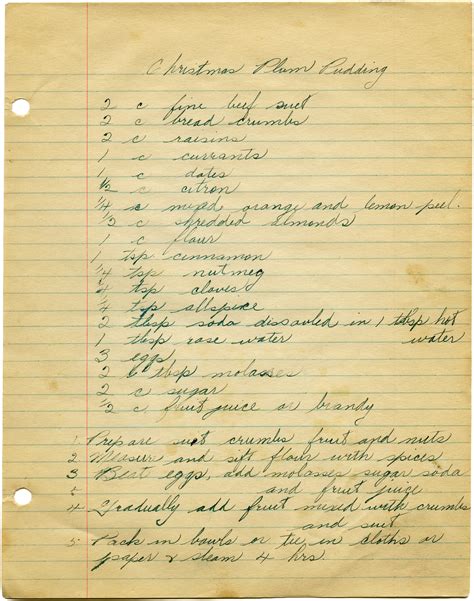 Christmas Plum Pudding
2 c fine beef suet
2 c bread crumbs
2 c raisins
1 c currants
1 c dates
1/2 c citron
1/4 c mixed orange and lemon peel.
1/3 c shredded almonds
1 c flour
1 tsp cinnamon
1/4 tsp nutmeg
1/4 tsp cloves
1/4 tsp allspice
2 tbsp soda dissolved in 1 tbsp hot
1 tbsp rose water water
3 eggs
2 tbsp molasses
2 c sugar
1/2 c fruit juice or brandy
1 Prepare suet crumbs fruit and nuts
2 Measure and sift flour with spices
3 Beat eggs, add molasses sugar soda
5 and fruit juice
4 Gradually add fruit mixed with crumbs
and suet
5 Pack in bowls or tie in cloths or
paper & steam 4 hrs.